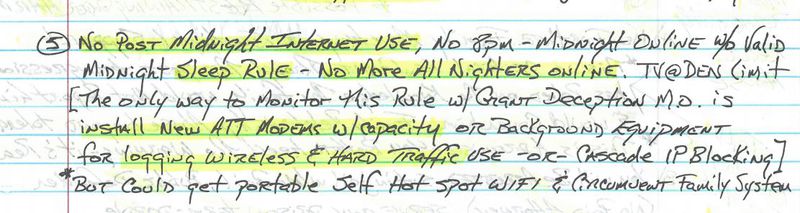 ⑤ No Post Midnight Internet Use, No 8pm - Midnight Online w/o Valid
Midnight Sleep Rule - No More All Nighters online. TV@DEN Limit
[The only way to Monitor this Rule w/ Grant Deception M.O. is
install New ATT Modems w/capacity or Background Equipment
for logging wireless & Hard Traffic Use -or- Cascade IP Blocking]
*But could get portable Self Hot Spot WIFI & Circumvent Family System